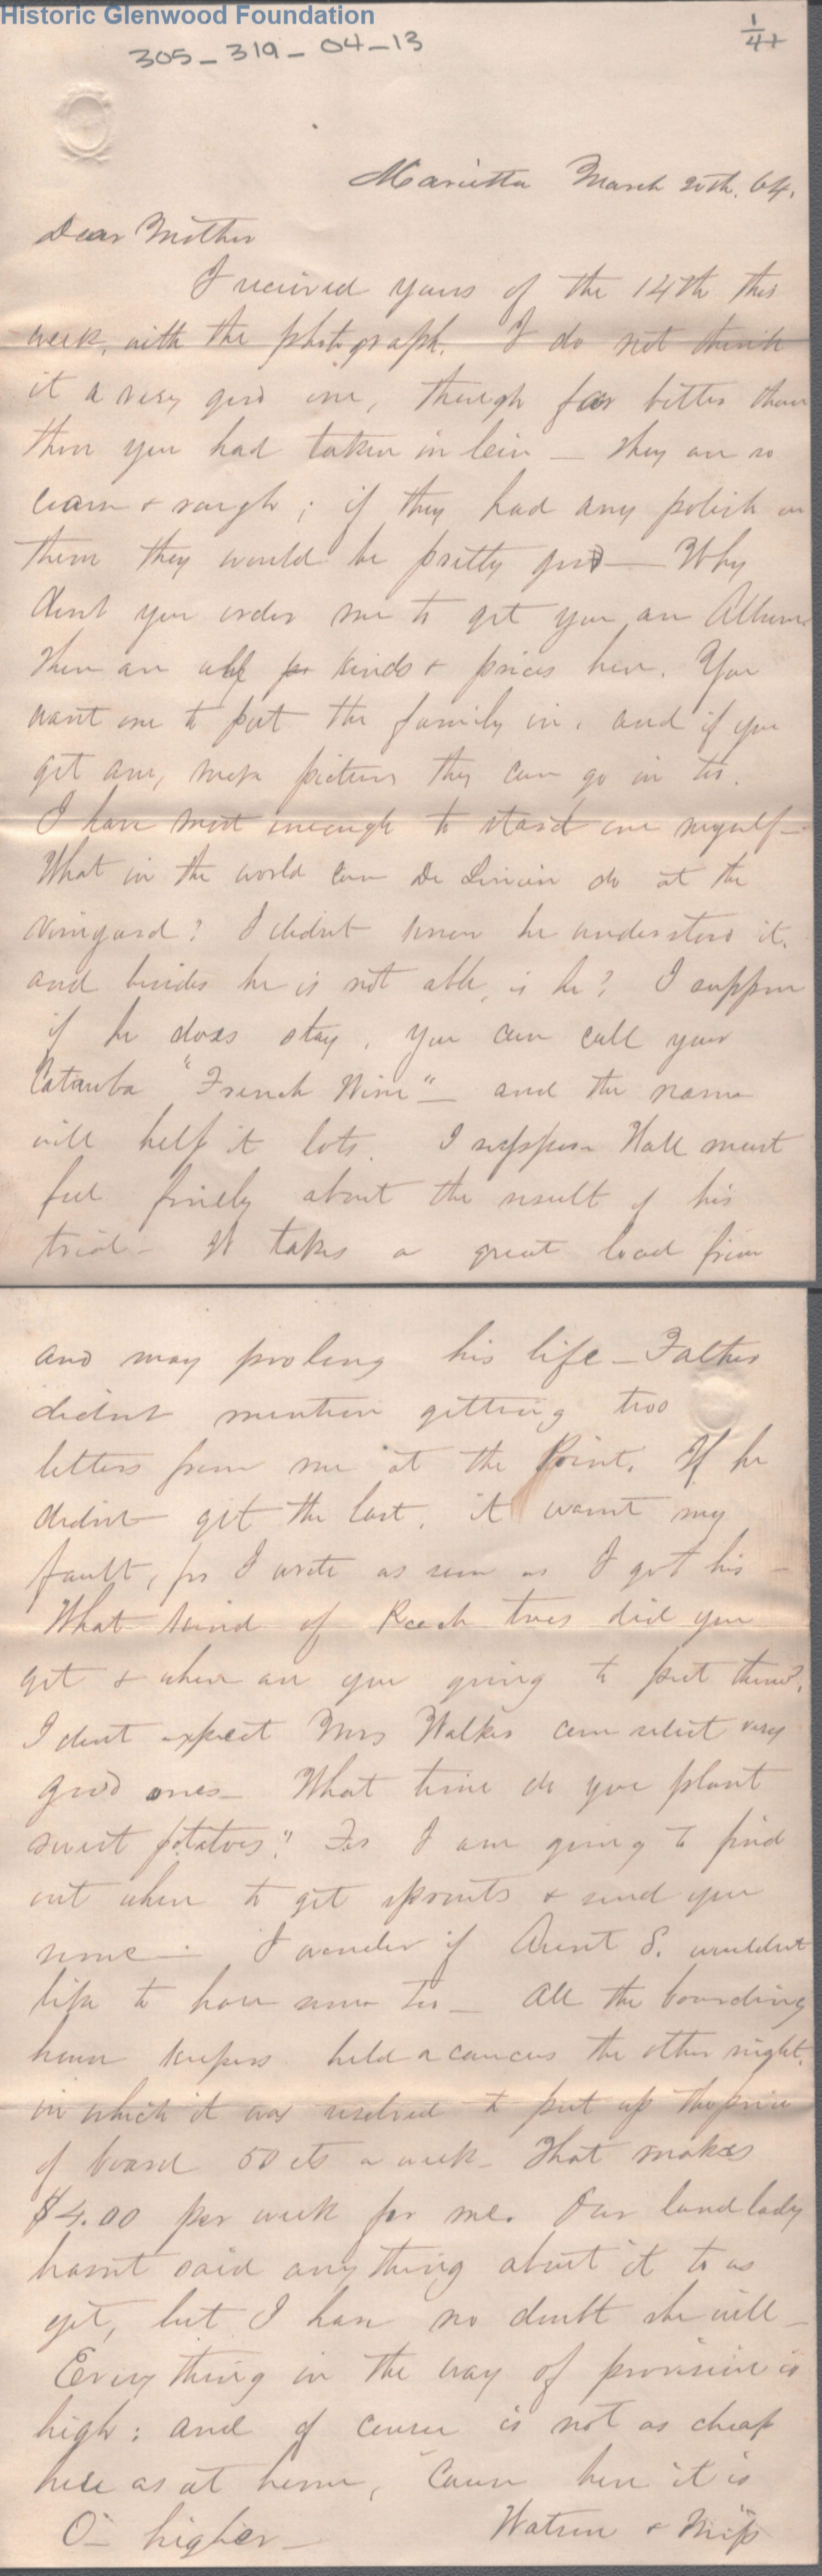 Historic Glenwood Foundation
305_319_04_13
1/4+
Marietta March 20th. 64.
Dear Mother
I received yours of the 14th this
week, with the photograph. I do not think
it a very good one, though far better than
them you had taken in — they are so
& rough; if they had any polish on
them they would be pretty good — Why
dont you order me to get you an Album.
There are all kinds & prices here. You
want one to put the family in, and if you
get any more pictures they can go in too.
I have most enough to start one myself —
What in the world can De do at the
vineyard? I didnt know he understood it.
and besides he is not able, is he? I suppose
if he does stay, you can call your
Catawba "French Wine" — and the name
will help it lots. I suppose Hall must
feel finely about the result of his
trial — It takes a great load from
and may prolong his life — Father
didnt mention getting two
letters from me at the Point. If he
didnt get the last, it wasnt my
fault, for I wrote as soon as I got his —
What kind of Peach trees did you
get & where are you going to put them?
I dont expect Mrs Walker can select very
good ones — What time do you plant
sweet potatoes? For I am going to find
out when to get sprouts & send you
some — I wonder if Aunt S. wouldnt
like to have some too — All the boarding
house keepers held a caucus the other night,
in which it was resolved to put up the price
of board 50 cts a week — That makes
$4.00 per week for me. Our land lady
hasnt said any thing about it to us
yet, but I have no doubt she will —
Every thing in the way of provision is
high; and of course is not as cheap
here as at home, Cause here it is
O — higher — Watson & Miss